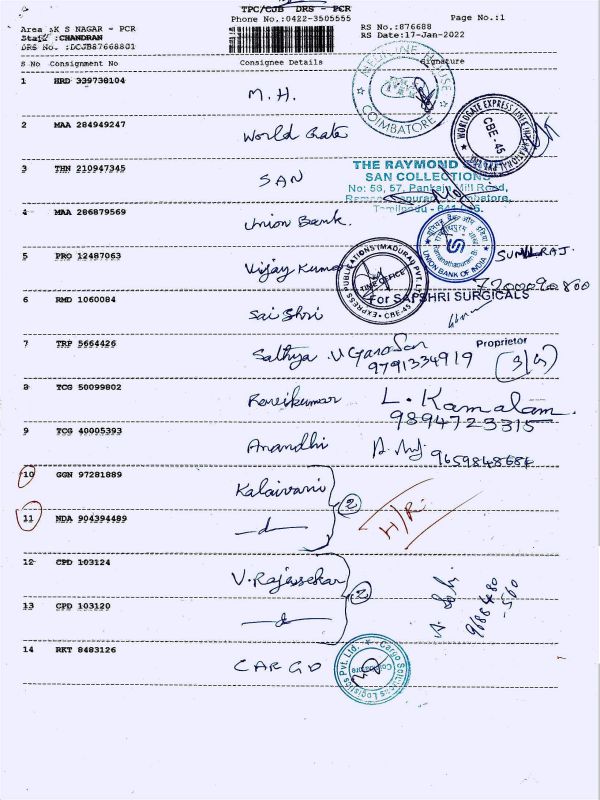 TPC/CJB DRS - PCR
Phone No.:0422-3505555
Page No.:1
Area :K S NAGAR - PCR
RS No.:876688
Staff :CHANDRAN
RS Date:17-Jan-2022
DRS No. :DCJB87668801
S No Consignment No Consignee Details Signature
1 HRD 339738104 M.H.
MEDICINE HOUSE COIMBATORE
2 MAA 284949247 World Gate
CBE-45
3 THN 210947345 SAN
THE RAYMOND
SAN COLLECTIONS
No: 56, 57, Pankaja Mill Road,
4 MAA 286879569 Union Bank.
UNION BANK OF INDIA
5 PRO 12487063 Vijay Kumar
EXPRESS PUBLICATIONS (MADURAI) PVT. LTD. CBE-45
TIME OFFICE
SUNILRAJ.
7200090800
6 RMD 1060084 Sai Shri
For SAISHRI SURGICALS
Proprietor
7 TRP 5664426 Sathya
9791334919
8 TCG 50099802
L. Kamalam.
9894723315
9 TCG 40005393 Anandhi
9659848684
10 GGN 97281889 Kalaivani
2
H/R.
11 NDA 904394489
12 CPD 103124 V. Rajasekar
2
13 CPD 103120
14 RKT 8483126 CARGO
Cargo Solutions Logistics Pvt. Ltd.
Coimbatore